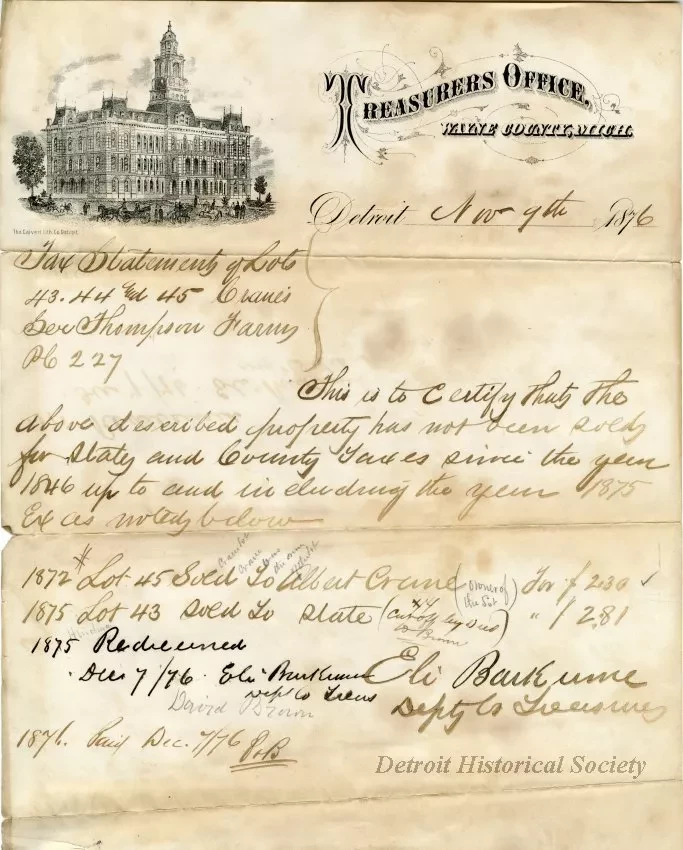 TREASURERS OFFICE,
WAYNE COUNTY, MICH.
Detroit Nov 9th 1876
The Calvert Lith. Co. Detroit.
Tax Statement of Lots
43. 44 & 45 Cranes
Sec Thompson Farm
PC 227
This is to Certify that the
above described property has not been sold
for State and County Taxes since the year
1846 up to and including the year 1875
Ex as noted below
1872 Lot 45 Sold To Albert Crane (owner of the Lot) for $ 2.30
1875 Lot 43 Sold To State " $ 2.81
1875 Redeemed
Dec 7/76. Eli Barkume
Dept Co Treas
Eli Barkume
Depty Co Treasurer
David Brown
1876. Paid Dec. 7/76
Detroit Historical Society